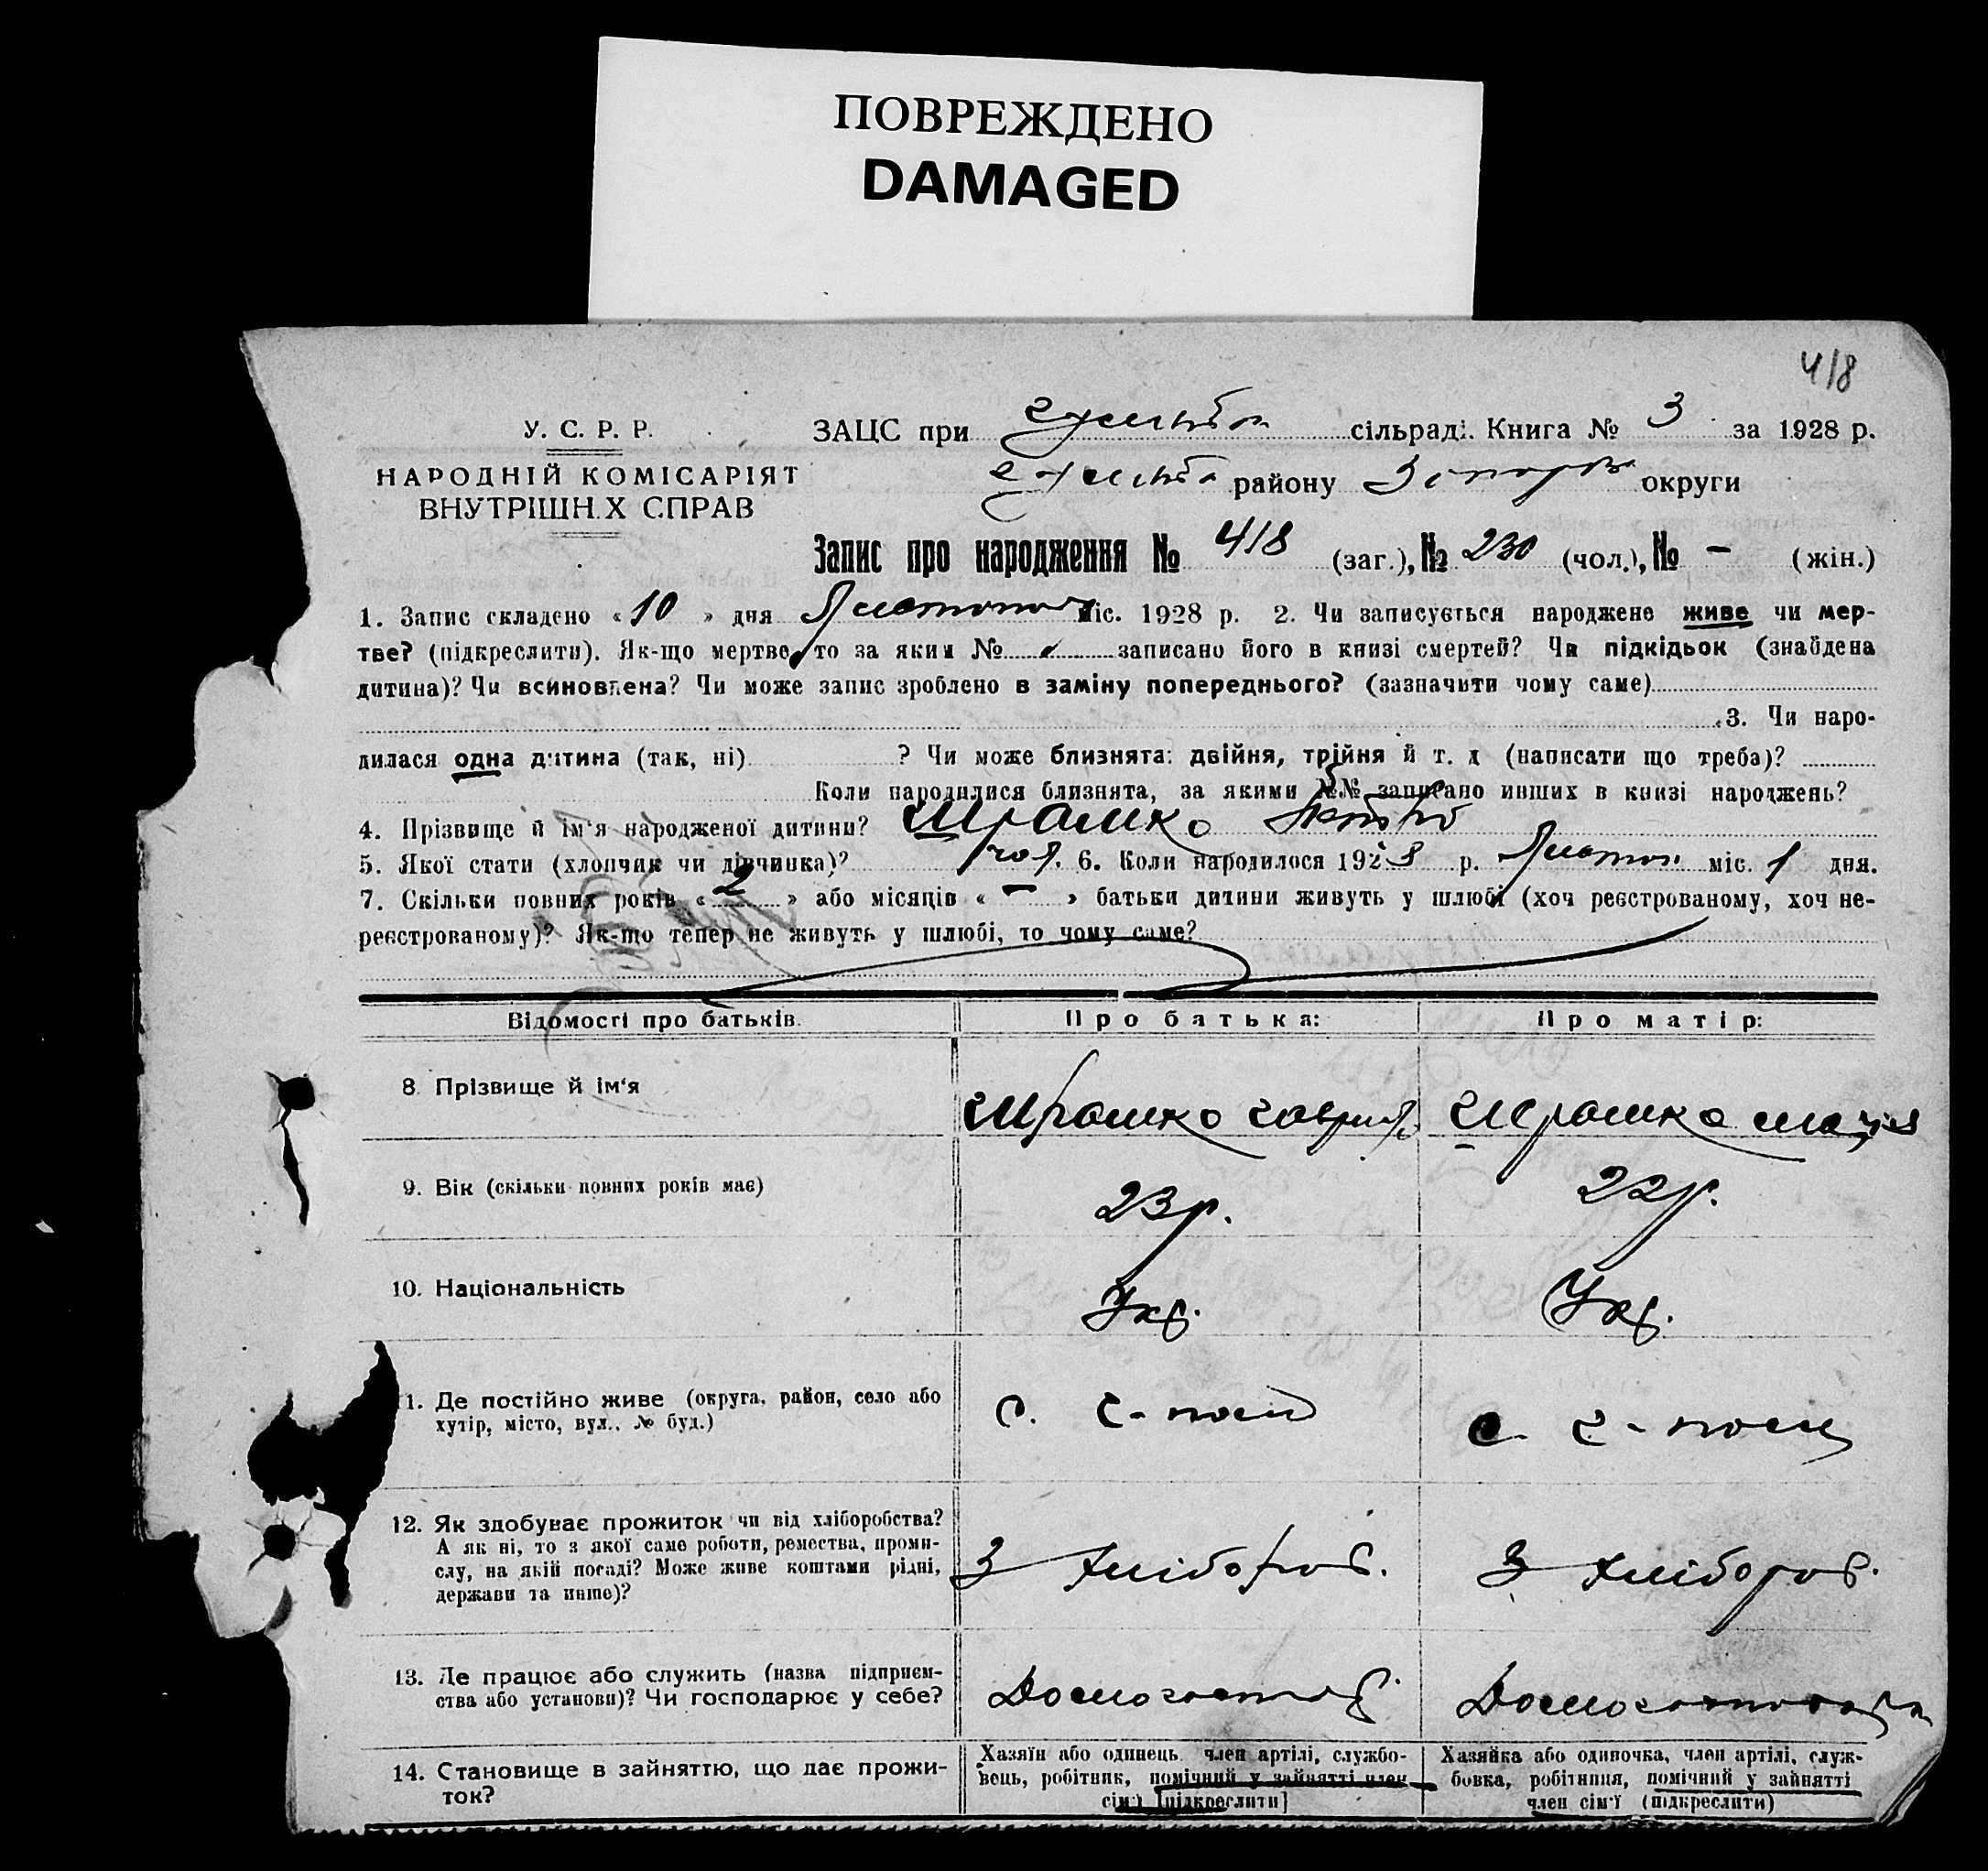 ПОВРЕЖДЕНО
DAMAGED
418
У. С. Р. Р.
НАРОДНІЙ КОМІСАРІЯТ
ВНУТРІШН.Х СПРАВ
ЗАЦС при сільраді. Книга № 3 за 1928 р.
району округи
Запис про народження № 418 (заг.), № 230 (чол.), № – (жін.)
1. Запис складено « 10 » дня Листопад міс. 1928 р. 2. Чи записується народжене живе чи мер-
тве? (підкреслити). Як-що мертве, то за яким № записано його в книзі смертей? Чи підкідьок (знайдена
дитина)? Чи всиновлена? Чи може запис зроблено в заміну попереднього? (зазначити чому саме)
3. Чи наро-
дилася одна дитина (так, ні) ? Чи може близнята: двійня, трійня й т. д (написати що треба)?
Коли народилися близнята, за якими №№ записано инших в книзі народжень?
4. Прізвище й ім'я народженої дитини? Шрамко
5. Якої стати (хлопчик чи дівчинка)? чол. 6. Коли народилося 1928 р. Листоп. міс. 1 дня.
7. Скільки повних років « 2 » або місяців « – » батьки дитини живуть у шлюбі (хоч реєстрованому, хоч не-
реєстрованому)? Як-що тепер не живуть у шлюбі, то чому саме?
Відомості про батьків. Про батька: Про матір:
8. Прізвище й ім'я Шрамко Гаврило Шрамко Марія
9. Вік (скільки повних років має) 23 р. 22 р.
10. Національність Укр. Укр.
11. Де постійно живе (округа, район, село або
хутір, місто, вул., № буд.)
с. с.
12. Як здобуває прожиток чи від хліборобства?
А як ні, то з якої саме роботи, ремества, проми-
слу, на якій посаді? Може живе коштами рідні,
держави та инше)?
З хлібороб. З хлібороб.
13. Де працює або служить (назва підприєм-
ства або установи)? Чи господарює у себе?
Домогоспод. Домогосподарка
14. Становище в зайняттю, що дає прожи-
ток?
Хазяїн або одинець член артілі, службо-
вець, робітник, помічний у зайнятті член
сім'ї [підкреслити]
Хазяйка або одиночка, член артілі, служ-
бовка, робітниця, помічний у зайнятті
член сім'ї (підкреслити)